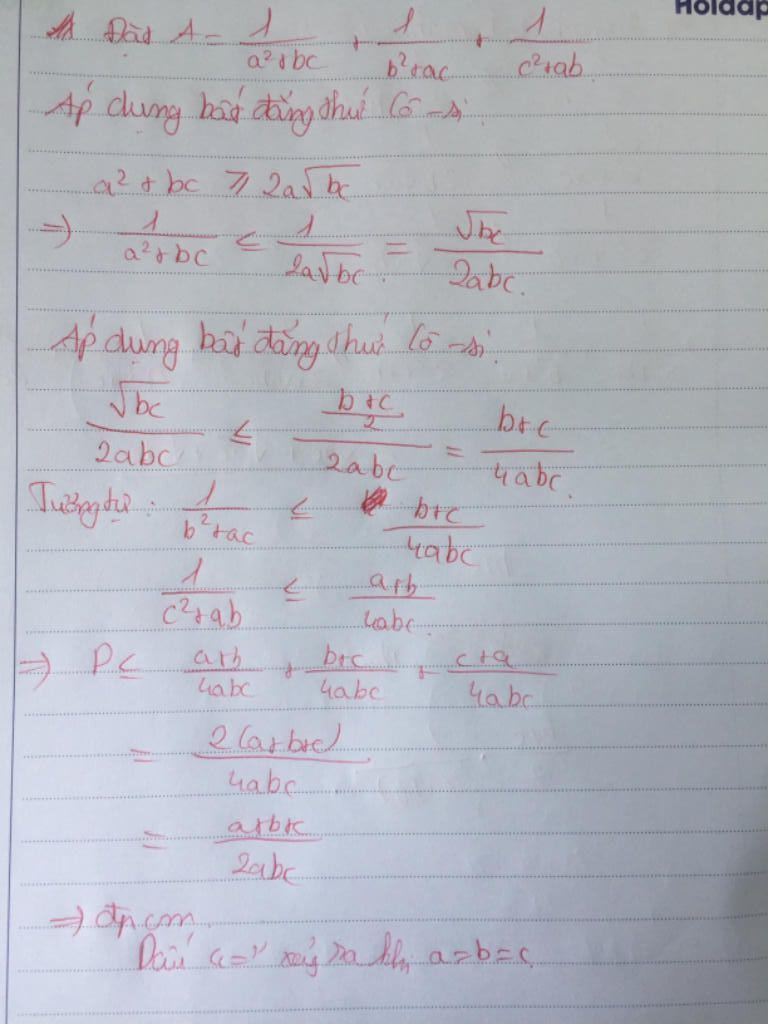 Hoidap
Đặt A = 1/(a²+bc) + 1/(b²+ac) + 1/(c²+ab)
Áp dụng bất đẳng thức Cô-si
a² + bc ≥ 2a√bc
⇒ 1/(a²+bc) ≤ 1/(2a√bc) = √bc/(2abc).
Áp dụng bất đẳng thức Cô-si
√bc/(2abc) ≤ ((b+c)/2)/(2abc) = (b+c)/(4abc).
Tương tự: 1/(b²+ac) ≤ (b+c)/(4abc)
1/(c²+ab) ≤ (a+b)/(4abc).
⇒ P ≤ (a+b)/(4abc) + (b+c)/(4abc) + (c+a)/(4abc)
= 2(a+b+c)/(4abc)
= (a+b+c)/(2abc)
⇒ đpcm.
Dấu "=" xảy ra khi a=b=c